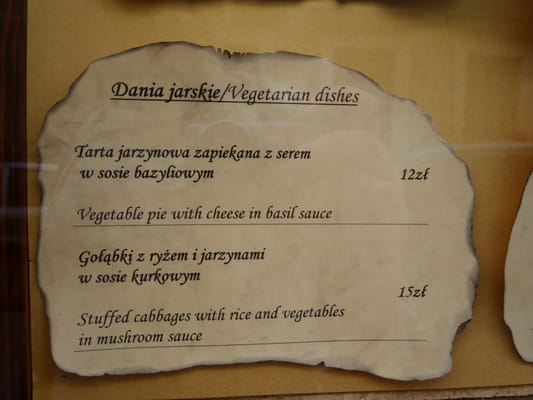 Dania jarskie/Vegetarian dishes
Tarta jarzynowa zapiekana z serem
w sosie bazyliowym 12zł
Vegetable pie with cheese in basil sauce
Gołąbki z ryżem i jarzynami
w sosie kurkowym
15zł
Stuffed cabbages with rice and vegetables
in mushroom sauce